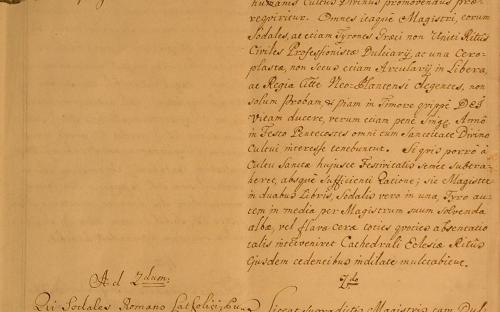 humanis Cultus Divinus promovendus præ-
requiritur. Omnes itaque Magistri, eorum
Sodales, ac etiam Tyrones Græci non Uniti Ritus
Civiles Professionistæ Dulciarÿ, ac una Cero-
plastæ, non secus etiam Arcularÿ in Libera,
ac Regia Citte Neo-Plantensi degentes, non
solum Probam, & piam in Timore quippe DEI
Vitam ducere, verum etiam pene Singe Anno
in Festo Pentecostes omni cum Sanctitate Divino
Cultui interesse tenebuntur. Si quis porro à
Cultu Sanctæ hujusce Festivitatis semet subtra-
heret, absque Sufficienti Ratione; sic Magister
in duabus Libris, Sodalis vero in una, Tyro au-
tem in media per Magistrum suum solvenda
albæ, vel flavæ ceræ toties quoties absentatio
talis interveniret Cathedrali Ecclesiæ Ritus
Ejusdem cedentibus indilate mulctabitur.
Ad 2dum:
2do
Qui Sodales Romano Catholici,
Liceat supradictis Magistris tam Dul-